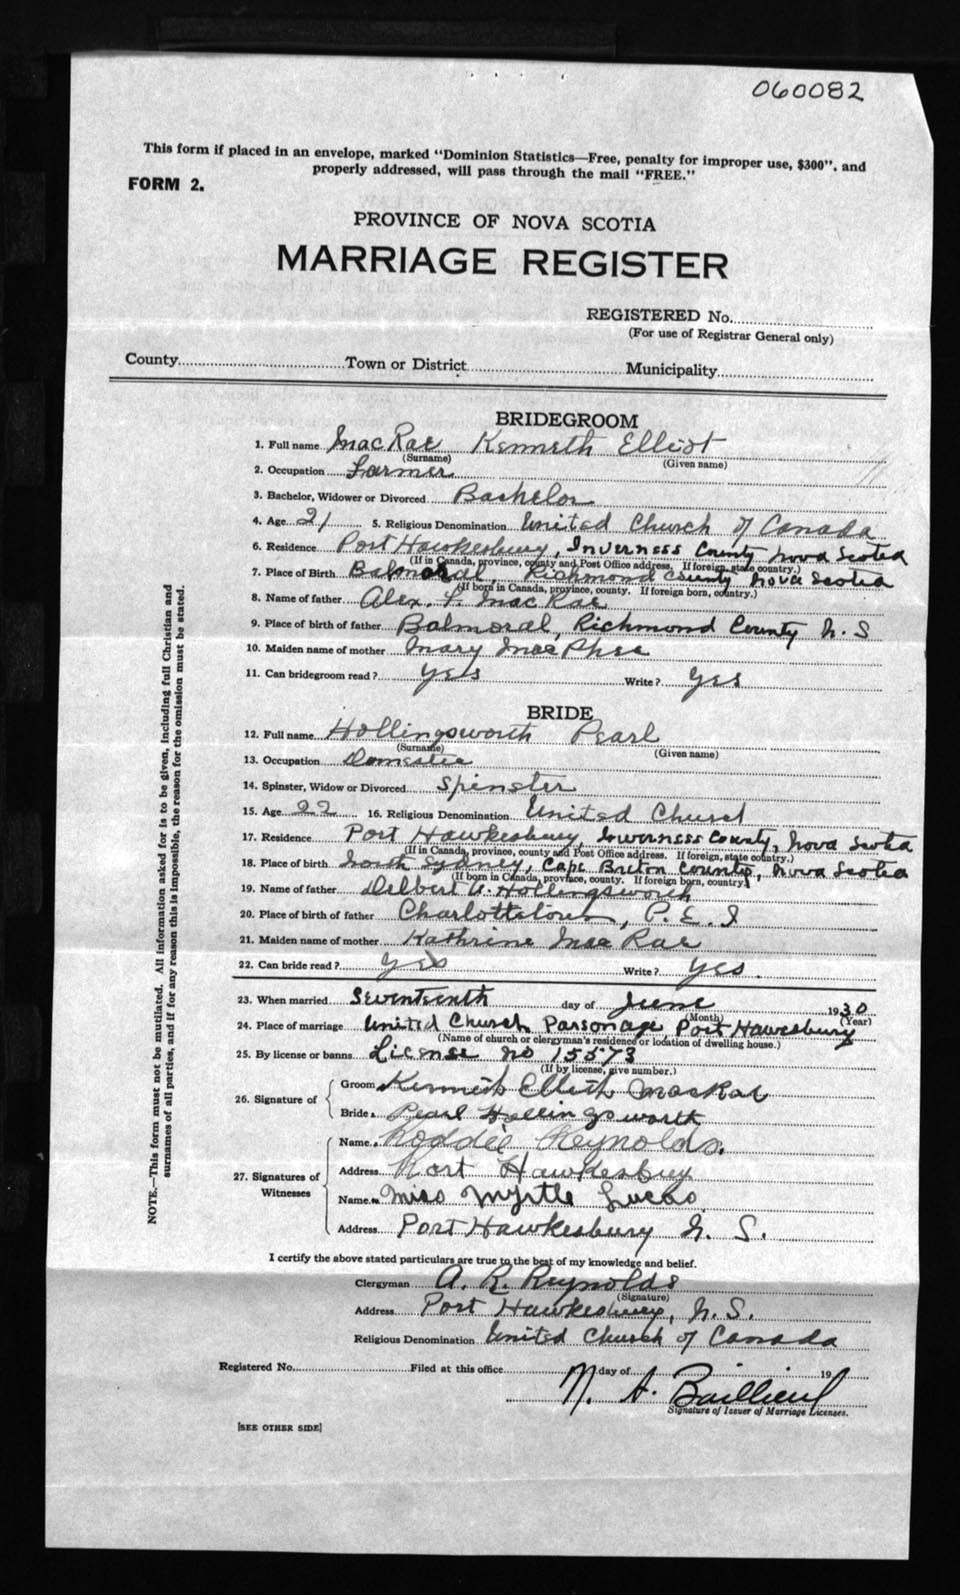 060082
This form if placed in an envelope, marked "Dominion Statistics—Free, penalty for improper use, $300", and
properly addressed, will pass through the mail "FREE."
FORM 2.
PROVINCE OF NOVA SCOTIA
MARRIAGE REGISTER
REGISTERED No.
(For use of Registrar General only)
County Town or District Municipality
BRIDEGROOM
1. Full name MacRae Kenneth Elliot
(Surname) (Given name)
2. Occupation Farmer
3. Bachelor, Widower or Divorced Bachelor
4. Age 21 5. Religious Denomination United Church of Canada
6. Residence Port Hawkesbury, Inverness County Nova Scotia
(If in Canada, province, county and Post Office address. If foreign, state country.)
7. Place of Birth Balmoral, Richmond County Nova Scotia
(If born in Canada, province, county. If foreign born, country.)
8. Name of father Alex. P. MacRae
9. Place of birth of father Balmoral, Richmond County N. S
10. Maiden name of mother Mary MacPhee
11. Can bridegroom read? Yes Write? Yes
BRIDE
12. Full name Hollingsworth Pearl
(Surname) (Given name)
13. Occupation Domestic
14. Spinster, Widow or Divorced Spinster
15. Age 22 16. Religious Denomination United Church
17. Residence Port Hawkesbury, Inverness County, Nova Scotia
(If in Canada, province, county and Post Office address. If foreign, state country.)
18. Place of birth North Sydney, Cape Breton County, Nova Scotia
(If born in Canada, province, county. If foreign born, country.)
19. Name of father Delbert A. Hollingsworth
20. Place of birth of father Charlottetown, P. E. I
21. Maiden name of mother Kathrine MacRae
22. Can bride read? Yes Write? Yes.
23. When married Seventeenth day of June 1930
(Month) (Year)
24. Place of marriage United Church Parsonage Port Hawkesbury
(Name of church or clergyman's residence or location of dwelling house.)
25. By license or banns License no 15573
(If by license, give number.)
26. Signature of
Groom Kenneth Elliot MacRae
Bride Pearl Hollingsworth
27. Signatures of Witnesses
Name Roddie Reynolds.
Address Port Hawkesbury
Name Miss Myrtle Lucas
Address Port Hawkesbury N. S.
I certify the above stated particulars are true to the best of my knowledge and belief.
Clergyman A. R. Reynolds
(Signature)
Address Port Hawkesbury, N. S.
Religious Denomination United Church of Canada
Registered No. Filed at this office day of 19
N. A. Baillieul
Signature of Issuer of Marriage Licenses.
[SEE OTHER SIDE]
NOTE.—This form must not be mutilated. All information asked for is to be given, including full Christian and
surnames of all parties, and if for any reason this is impossible, the reason for the omission must be stated.